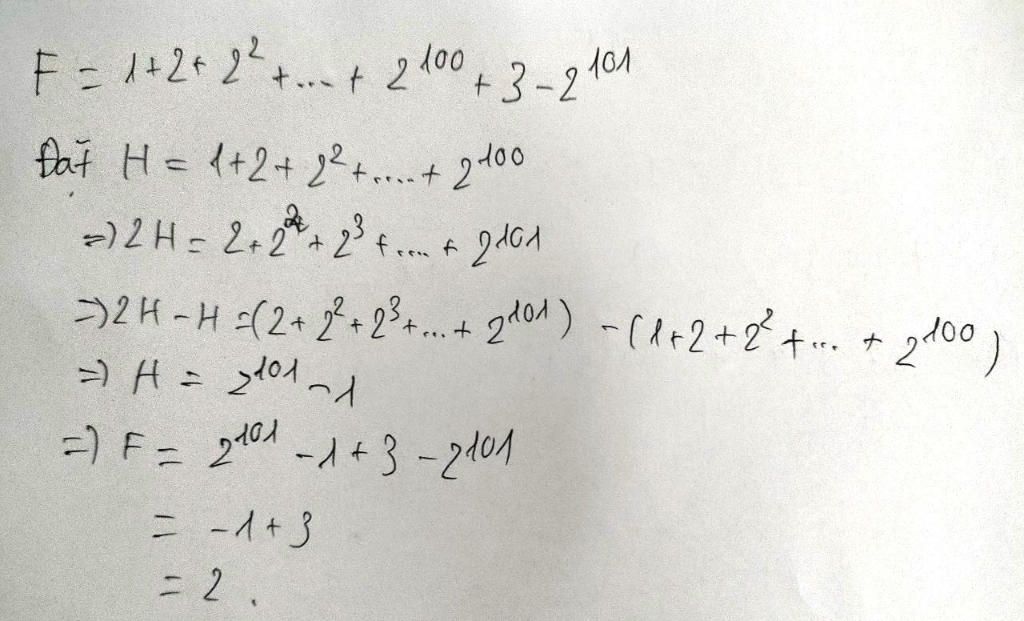 F = 1+2+2² +...+ 2¹⁰⁰ + 3 - 2¹⁰¹
Đặt H = 1+2+2²+.....+2¹⁰⁰
=) 2H = 2+2²+2³+....+2¹⁰¹
=) 2H - H = (2+2²+2³+...+2¹⁰¹) - (1+2+2²+...+2¹⁰⁰)
=) H = 2¹⁰¹ - 1
=) F = 2¹⁰¹ - 1 + 3 - 2¹⁰¹
= -1 + 3
= 2.